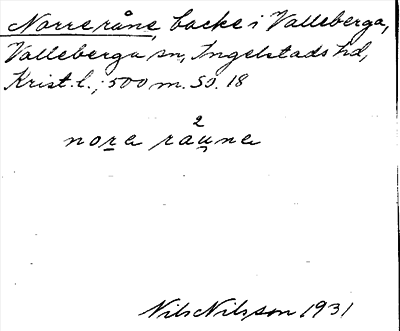 Norreråne, backe i Valleberga,
Valleberga sn, Ingelstads hd,
Krist. l.; 500 m. SO. 18
2
nora rauna
Nils Nilsson 1931